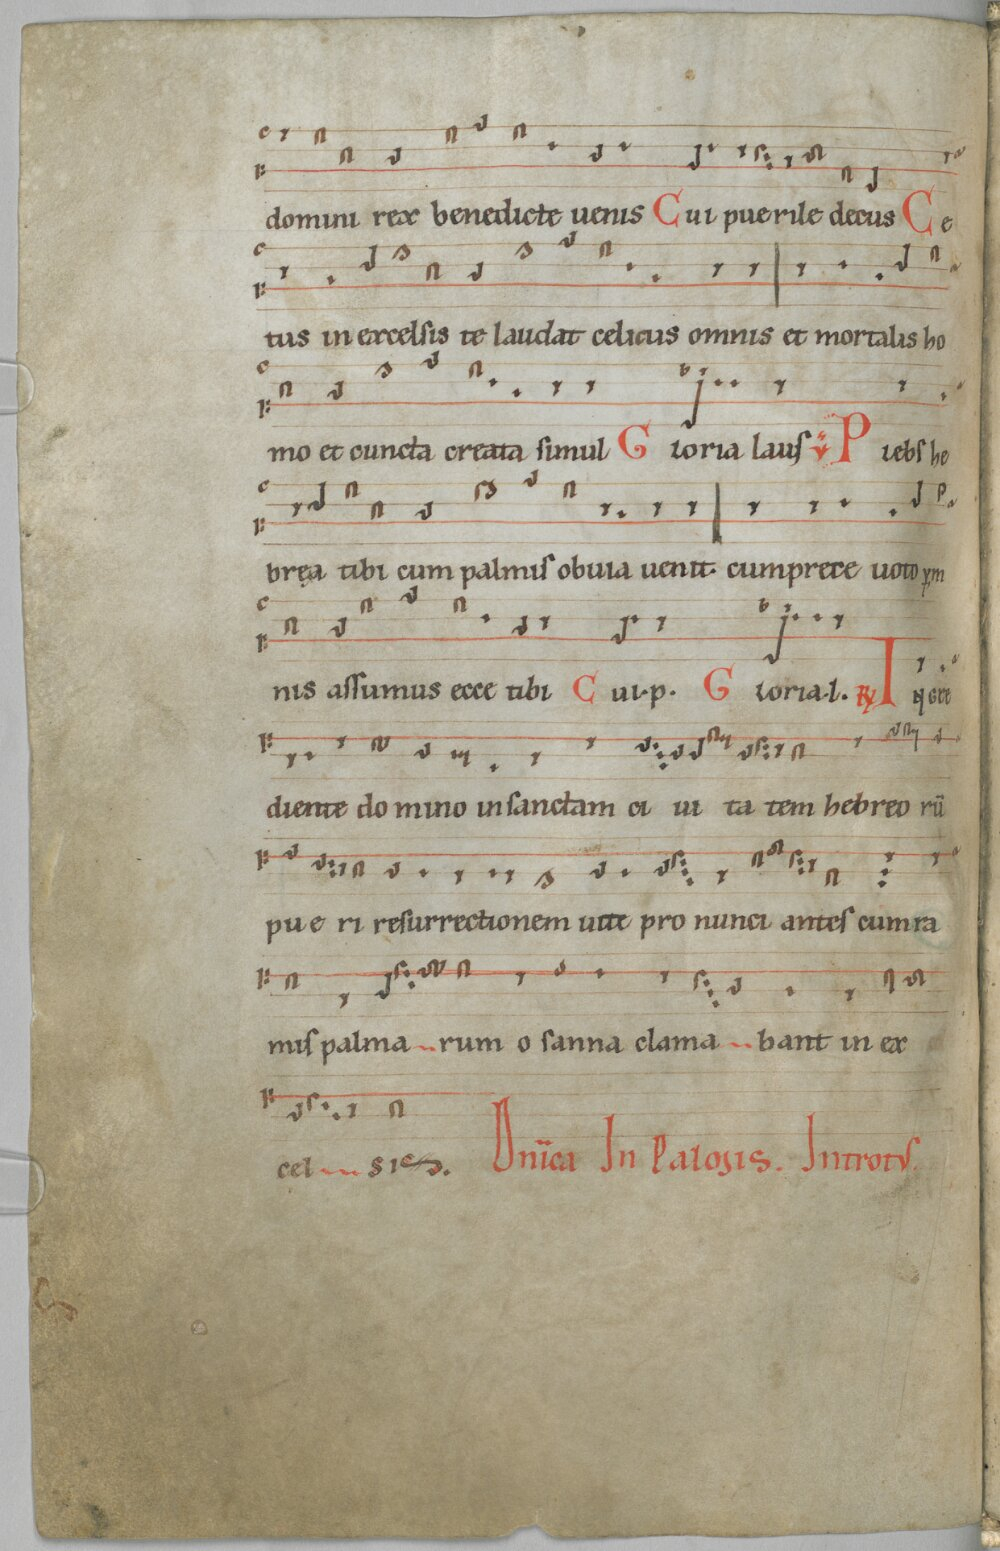 domini rex benedicte uenis Cui puerile decus Ce
tus in excelsis te laudat celicus omnis et mortalis ho
mo et cuncta creata simul Gloria laus ℣ Plebs he
bręa tibi cum palmis obuia uenit cum prece uoto ym
nis assumus ecce tibi Cui.p. Gloria.l. ℟ Ingre
diente domino in sanctam ci ui ta tem hebreo rū
pu e ri resurrectionem uite pro nunci antes cum ra
mis palma rum o sanna clama bant in ex
cel sis. Dnīca In Palmis. Introitus.